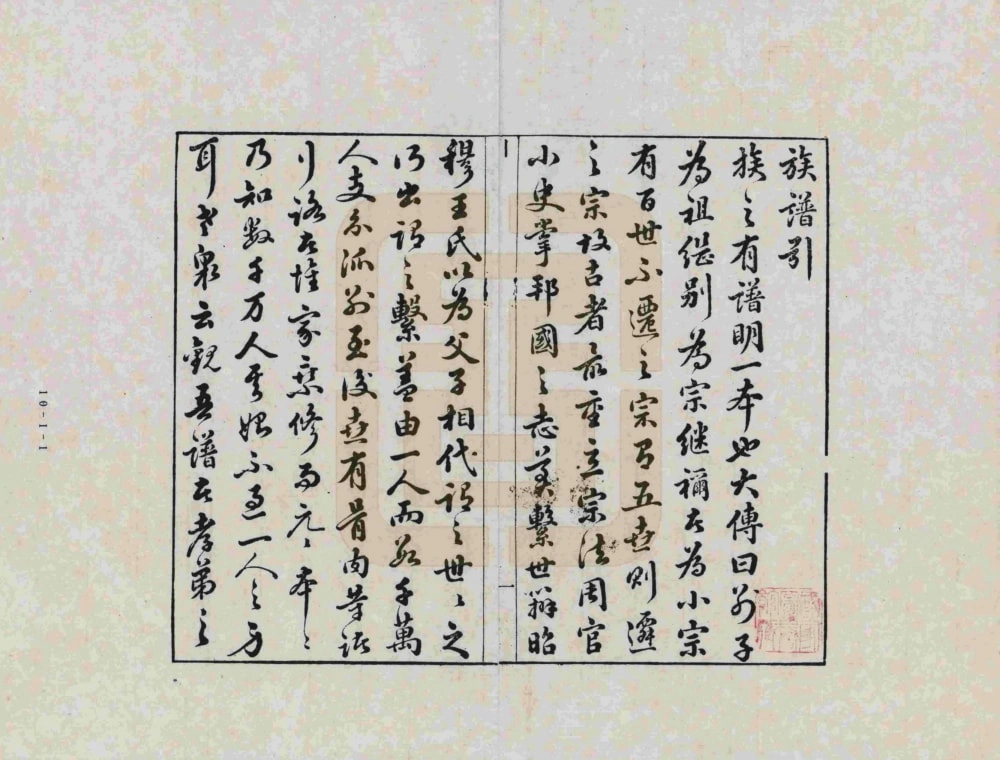 族譜引
族之有譜明一本也大傳曰别子
為祖繼别為宗繼禰者為小宗
有百世不遷之宗有五世則遷
之宗故古者最重立宗法周官
小史掌邦國之志奠繫世辨昭
穆王氏以為父子相代謂之世世之
所出謂之繫蓋由一人而為千萬
人支分派别至後世有骨肉等諸
行路者惟家乘修而元元本本
乃知數千万人其始不過一人之身
耳老泉云觀吾譜者孝弟之
10-1-1